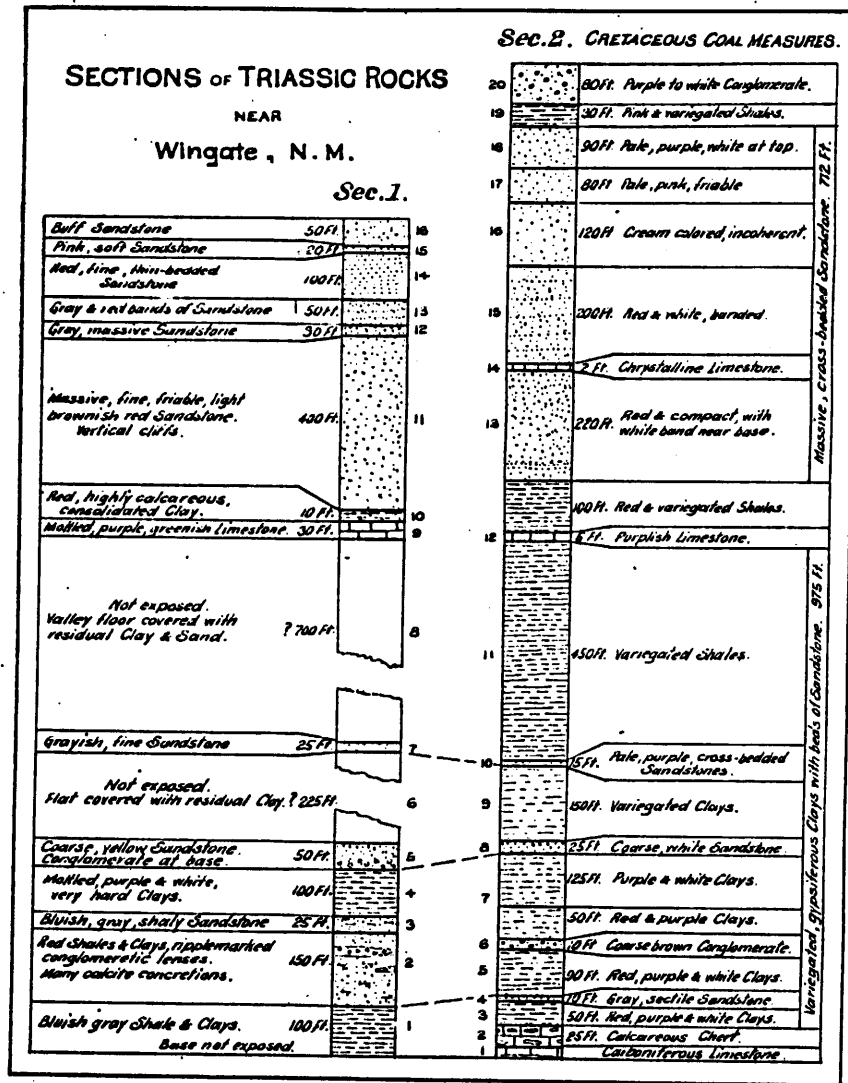 Sec.2. CRETACEOUS COAL MEASURES.
SECTIONS OF TRIASSIC ROCKS
NEAR
Wingate, N.M.
Sec.1.
Buff Sandstone 50Ft. 16
Pink, soft Sandstone 20Ft. 15
Red, fine, thin-bedded
Sandstone 100Ft. 14
Gray & red bands of Sandstone 50Ft. 13
Gray, massive Sandstone 30Ft. 12
Massive, fine, friable, light
brownish red Sandstone. 400Ft. 11
Vertical cliffs.
Red, highly calcareous,
consolidated Clay. 10Ft. 10
Mottled, purple, greenish Limestone. 30Ft. 9
Not exposed.
Valley floor covered with ? 700Ft. 8
residual Clay & Sand.
Grayish, fine Sandstone 25Ft. 7
Not exposed.
Flat covered with residual Clay. ? 225Ft. 6
Coarse, yellow Sandstone.
Conglomerate at base. 50Ft. 5
Mottled, purple & white,
very hard Clays. 100Ft. 4
Bluish, gray, shaly Sandstone 25Ft. 3
Red Shales & Clays, ripplemarked
conglomeretic lenses. 150Ft. 2
Many calcite concretions.
Bluish gray Shale & Clays. 100Ft. 1
Base not exposed.
20 80Ft. Purple to white Conglomerate.
19 30Ft. Pink & variegated Shales.
18 90Ft. Pale, purple, white at top.
17 80Ft. Pale, pink, friable
16 120Ft. Cream colored, incoherent.
15 200Ft. Red & white, banded.
14 2Ft. Chrystalline Limestone.
13 220Ft. Red & compact, with
white band near base.
Massive, cross-bedded Sandstone. 712 Ft.
100Ft. Red & variegated Shales.
12 6Ft. Purplish Limestone.
11 450Ft. Variegated Shales.
10 15Ft. Pale, purple, cross-bedded
Sandstones.
9 150Ft. Variegated Clays.
8 25Ft. Coarse, white Sandstone.
7 125Ft. Purple & white Clays.
50Ft. Red & purple Clays.
6 10Ft Coarse brown Conglomerate.
5 90Ft. Red, purple & white Clays.
4 10Ft. Gray, sectile Sandstone.
3 50Ft. Red, purple & white Clays.
2 25Ft. Calcareous Chert.
1 Carboniferous Limestone.
Variegated, gypsiferous Clays with beds of Sandstone. 975 Ft.